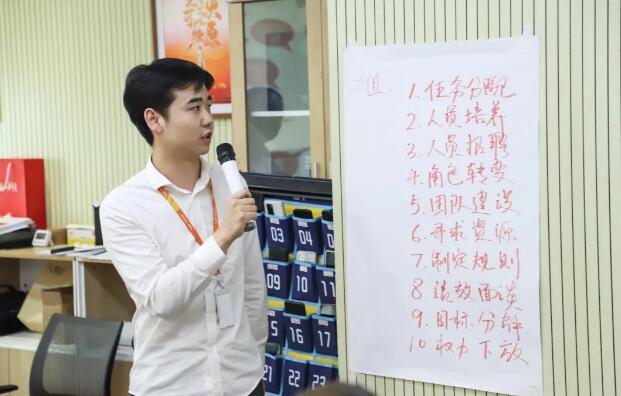 二组
1. 任务分配
2. 人员培养
3. 人员招聘
4. 角色转变
5. 团队建设
6. 寻求资源
7. 制定规则
8. 绩效面谈
9. 目标分解
10 权力下放
03 04
09 10 11
16 17
22 23